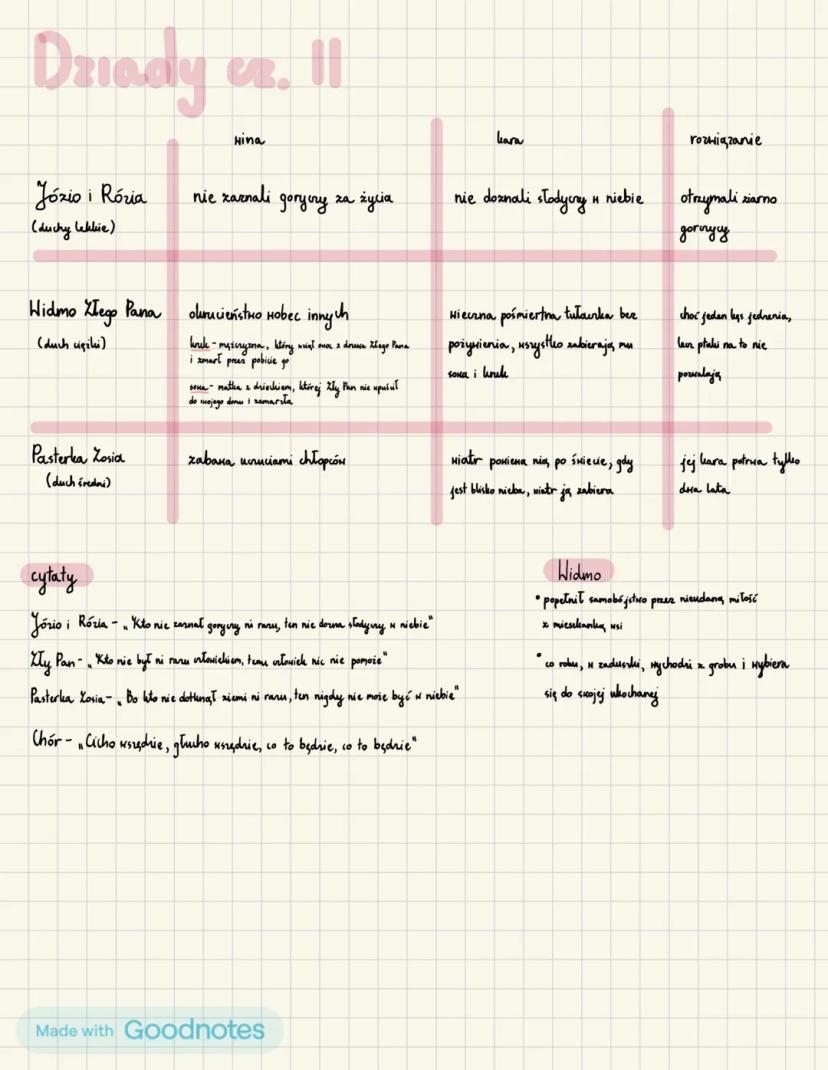 Dziady cz. II
wina kara rozwiązanie
Józio i Rózia nie zaznali goryczy za życia nie doznali słodyczy w niebie otrzymali ziarno
(duchy lekkie) gorczycy
Widmo Złego Pana okrucieństwo wobec innych wieczna pośmiertna tułaczka bez choć jeden kęs jedzenia,
(duch ciężki) kruk - mężczyzna, który wziął owoc z drzewa Złego Pana pożywienia, wszystko zabierają mu lecz ptaki na to nie
i zmarł przez pobicie go sowa i kruk pozwalają
sowa - matka z dzieckiem, której Zły Pan nie wpuścił
do swojego domu i zamarzła
Pasterka Zosia zabawa uczuciami chłopców wiatr poniewa nią po świecie, gdy jej kara potrwa tylko
(duch średni) jest blisko nieba, wiatr ją zabiera dwa lata
cytaty
Józio i Rózia - „Kto nie zaznał goryczy ni razu, ten nie dozna słodyczy w niebie"
Zły Pan - „Kto nie był ni razu człowiekiem, temu człowiek nic nie pomoże"
Pasterka Zosia - „Bo kto nie dotknął ziemi ni razu, ten nigdy nie może być w niebie"
Chór - „Cicho wszędzie, głucho wszędzie, co to będzie, co to będzie"
Widmo
• popełnił samobójstwo przez nieudaną miłość
z mieszkanką wsi
• co roku, w zaduszki, wychodzi z grobu i wybiera
się do swojej ukochanej
Made with Goodnotes